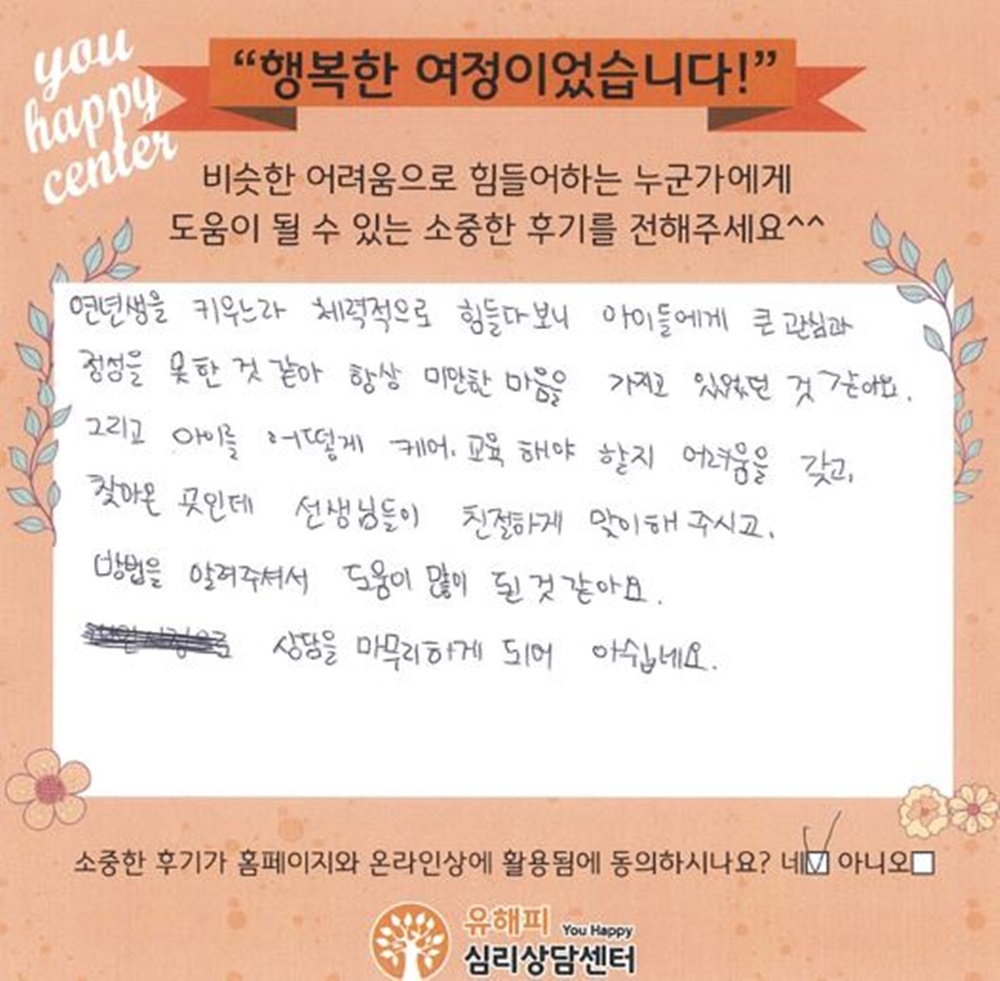 you
happy
center
“행복한 여정이었습니다!”
비슷한 어려움으로 힘들어하는 누군가에게
도움이 될 수 있는 소중한 후기를 전해주세요^^
연년생을 키우느라 체력적으로 힘들다보니 아이들에게 큰 관심과
정성을 못한 것 같아 항상 미안한 마음을 가지고 있었던 것 같아요.
그리고 아이를 어떻게 케어. 교육 해야 할지 어려움을 갖고,
찾아온 곳인데 선생님들이 친절하게 맞이해 주시고,
방법을 알려주셔서 도움이 많이 된 것 같아요.
상담을 마무리하게 되어 아쉽네요.
소중한 후기가 홈페이지와 온라인상에 활용됨에 동의하시나요? 네 아니오
유해피 You Happy
심리상담센터